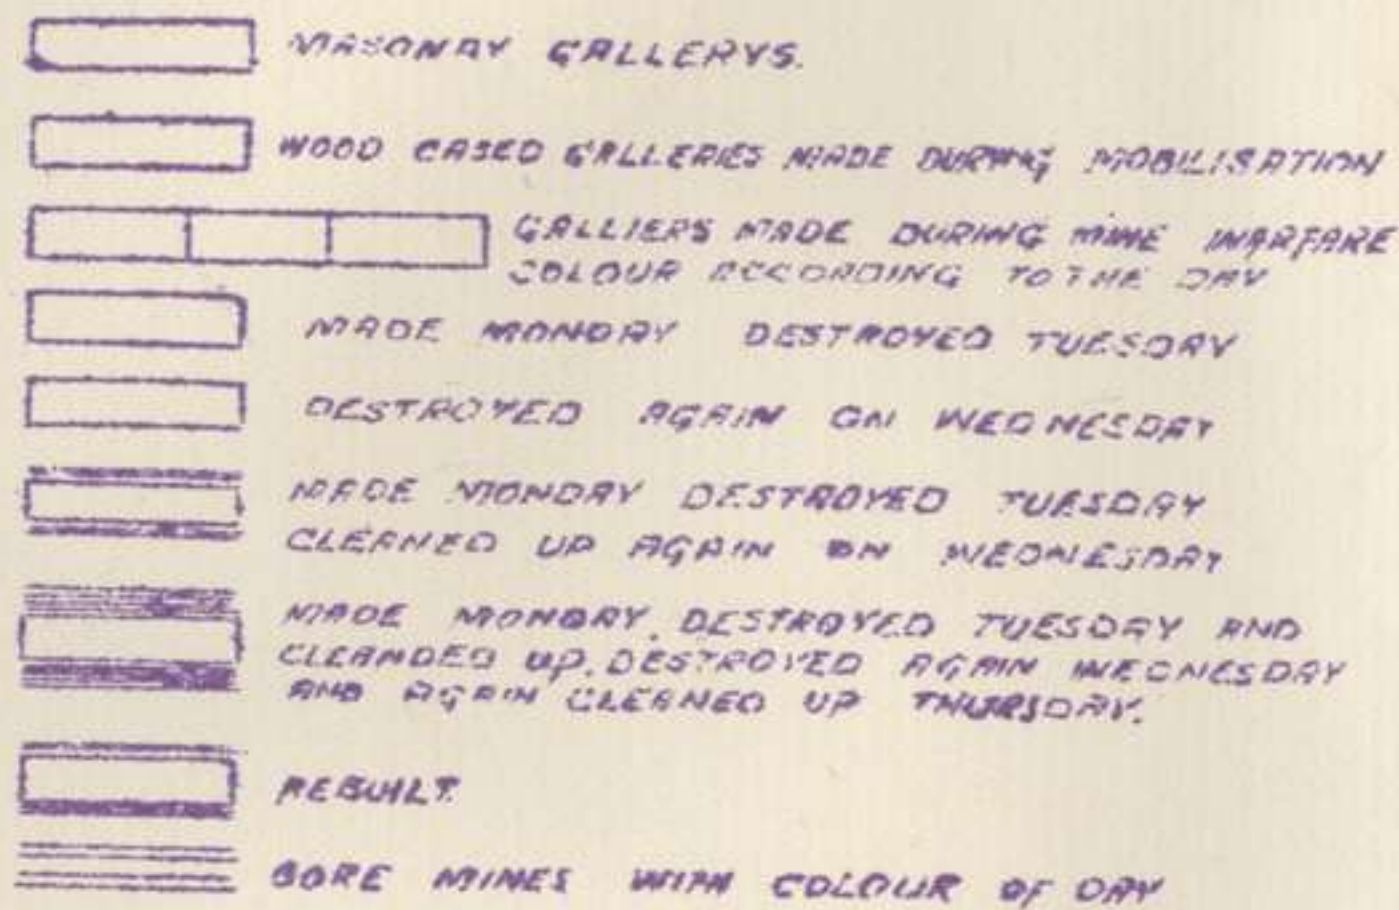 MASONAY GALLERYS.
WOOD CASED GALLERIES MADE DURING MOBILISATION
GALLIERS MADE DURING MINE WARFARE
COLOUR ACCORDING TO THE DAY
MADE MONDAY DESTROYED TUESDAY
DESTROYED AGAIN ON WEDNESDAY
MADE MONDAY DESTROYED TUESDAY
CLEANED UP AGAIN ON WEDNESDAY
MADE MONDAY. DESTROYED TUESDAY AND
CLEANDED UP. DESTROYED AGAIN WEDNESDAY
AND AGAIN CLEANED UP THURSDAY.
REBUILT.
BORE MINES WITH COLOUR OF DAY